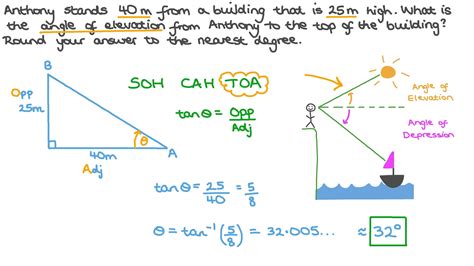 Anthony stands 40 m from a building that is 25 m high. What is
the angle of elevation from Anthony to the top of the building?
Round your answer to the nearest degree.
B
Opp
25m
40m
Adj
θ
A
SOH CAH TOA
tanθ = Opp
Adj
tanθ = 25 = 5
40 8
θ = tan⁻¹(5/8) = 32.005... ≈ 32°
Angle of
Elevation
Angle of
Depression